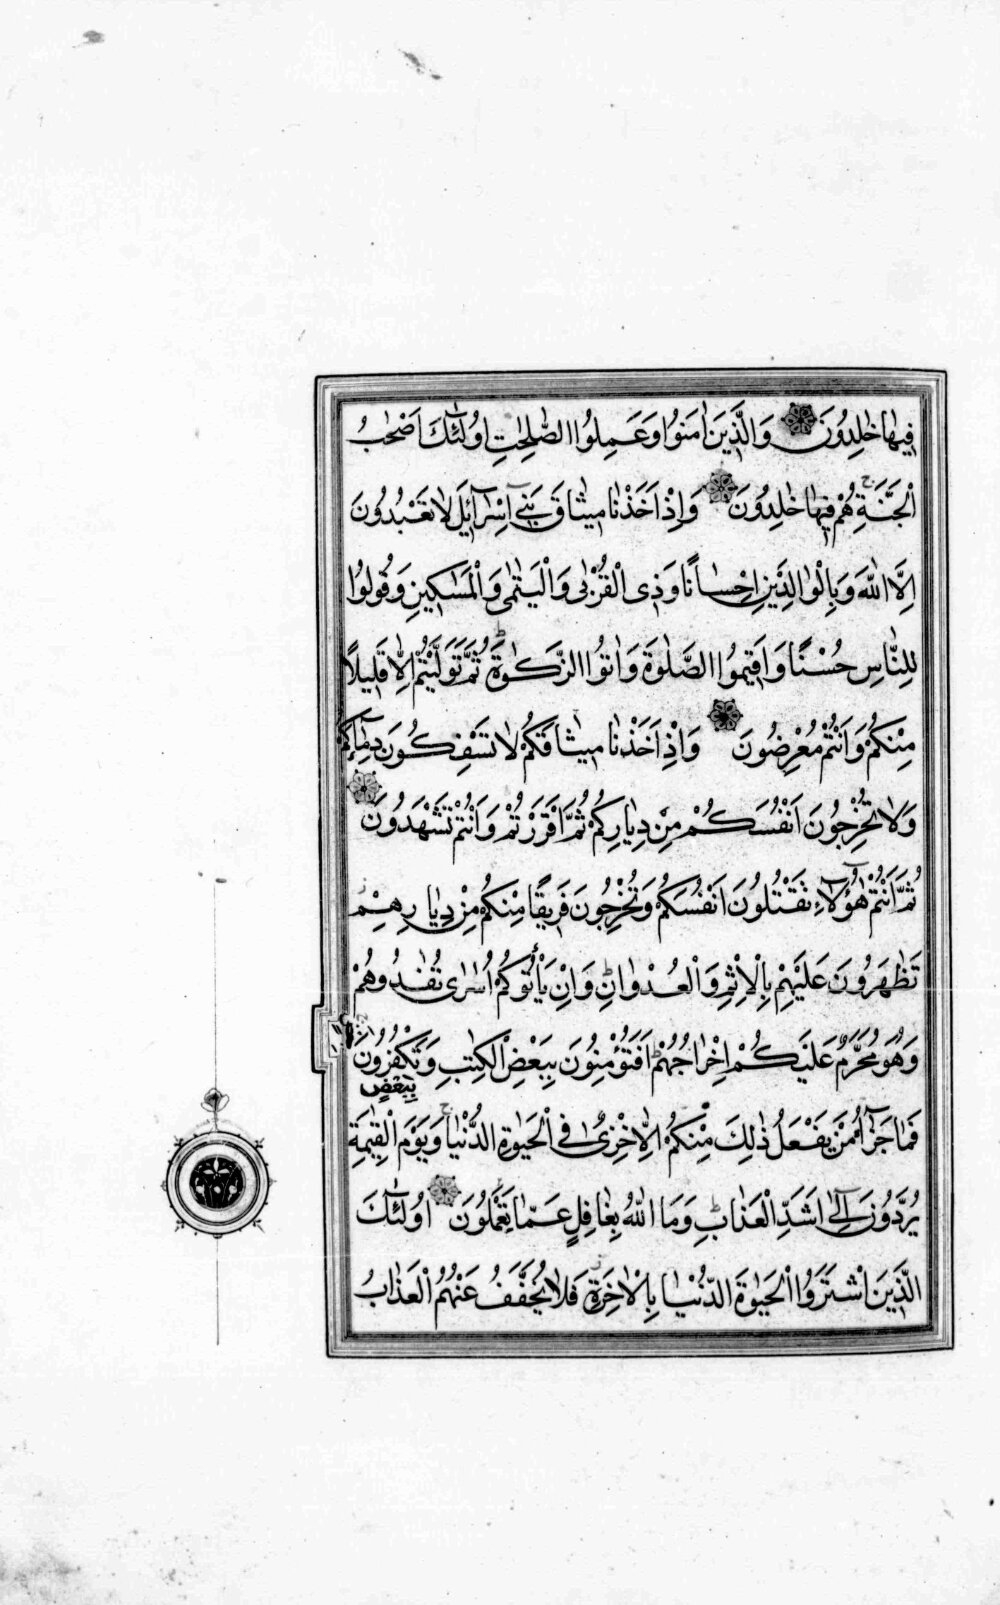 فِيهَا خٰلِدُونَ وَالَّذِينَ اٰمَنُوا وَعَمِلُوا الصّٰلِحٰتِ اُولٰٓئِكَ اَصْحٰبُ
الْجَنَّةِ هُمْ فِيهَا خٰلِدُونَ وَاِذْ اَخَذْنَا مِيثَاقَ بَنِٓى اِسْرَٓائِلَ لَا تَعْبُدُونَ
اِلَّا اللّٰهَ وَبِالْوَالِدَيْنِ اِحْسَانًا وَذِى الْقُرْبٰى وَالْيَتٰمٰى وَالْمَسٰكِينِ وَقُولُوا
لِلنَّاسِ حُسْنًا وَاَقِيمُوا الصَّلٰوةَ وَاٰتُوا الزَّكٰوةَ ثُمَّ تَوَلَّيْتُمْ اِلَّا قَلِيلًا
مِنْكُمْ وَاَنْتُمْ مُعْرِضُونَ وَاِذْ اَخَذْنَا مِيثَاقَكُمْ لَا تَسْفِكُونَ دِمَٓاءَكُمْ
وَلَا تُخْرِجُونَ اَنْفُسَكُمْ مِنْ دِيَارِكُمْ ثُمَّ اَقْرَرْتُمْ وَاَنْتُمْ تَشْهَدُونَ
ثُمَّ اَنْتُمْ هٰٓؤُلَٓاءِ تَقْتُلُونَ اَنْفُسَكُمْ وَتُخْرِجُونَ فَرِيقًا مِنْكُمْ مِنْ دِيَارِهِمْ
تَظَاهَرُونَ عَلَيْهِمْ بِالْاِثْمِ وَالْعُدْوَانِ وَاِنْ يَأْتُوكُمْ اُسَارٰى تُفَادُوهُمْ
وَهُوَ مُحَرَّمٌ عَلَيْكُمْ اِخْرَاجُهُمْ اَفَتُؤْمِنُونَ بِبَعْضِ الْكِتٰبِ وَتَكْفُرُونَ
بِبَعْضٍ
فَمَا جَزَٓاءُ مَنْ يَفْعَلُ ذٰلِكَ مِنْكُمْ اِلَّا خِزْىٌ فِى الْحَيٰوةِ الدُّنْيَا وَيَوْمَ الْقِيٰمَةِ
يُرَدُّونَ اِلٰٓى اَشَدِّ الْعَذَابِ وَمَا اللّٰهُ بِغَافِلٍ عَمَّا تَعْمَلُونَ اُولٰٓئِكَ
الَّذِينَ اشْتَرَوُا الْحَيٰوةَ الدُّنْيَا بِالْاٰخِرَةِ فَلَا يُخَفَّفُ عَنْهُمُ الْعَذَابُ